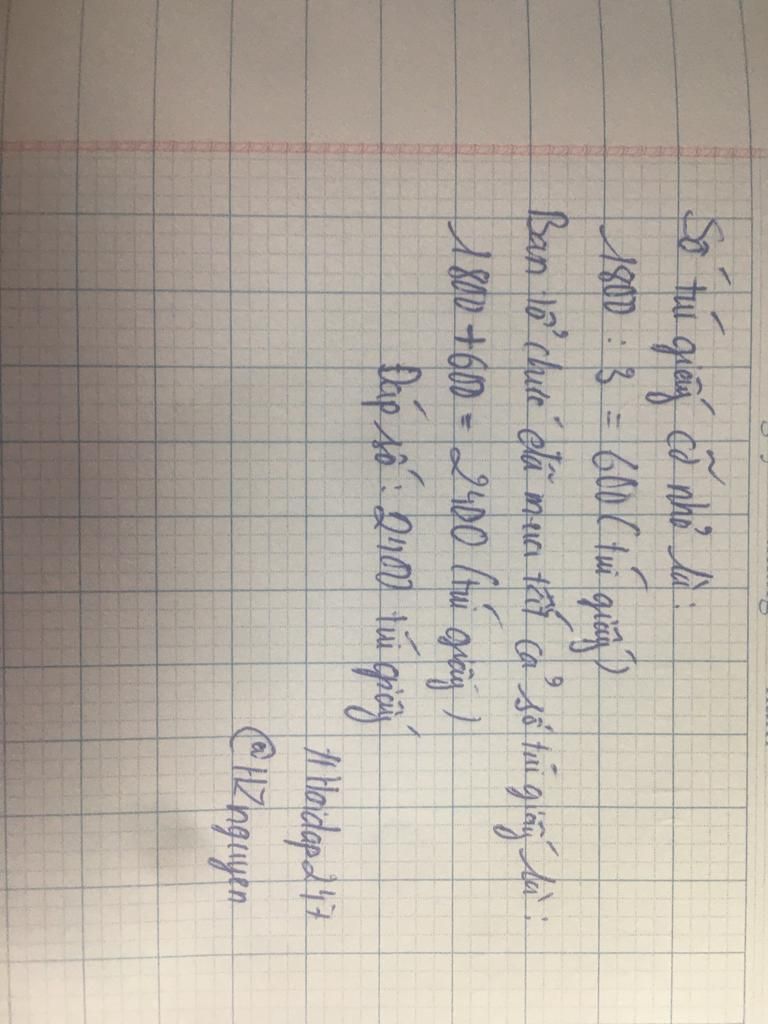 Số túi giấy cỡ nhỏ là:
1800 : 3 = 600 (túi giấy)
Ban tổ chức đã mua tất cả số túi giấy là:
1800 + 600 = 2400 (túi giấy)
Đáp số: 2400 túi giấy
#Hoidap247
@HZnguyen